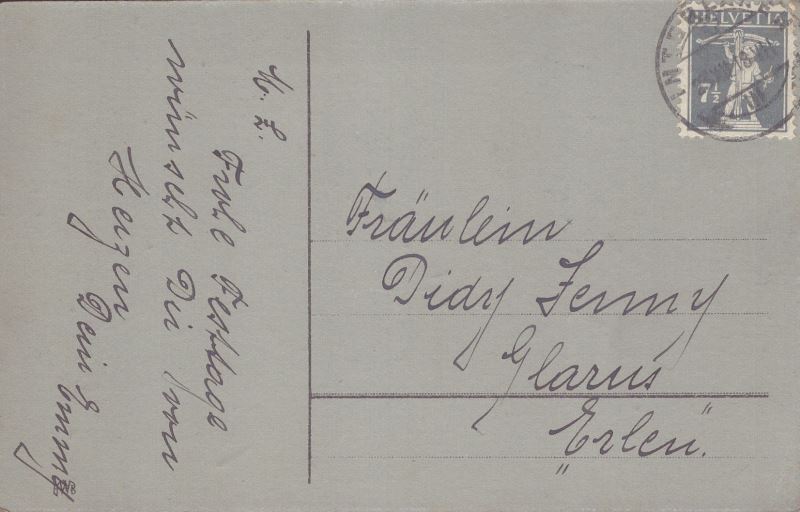 M. L.
Frohe Festtage
wünscht Dir von
Herzen
Dein Emmy
HELVETIA
7½
Fräulein
Didy Jenny
Glarus
„Erlen".